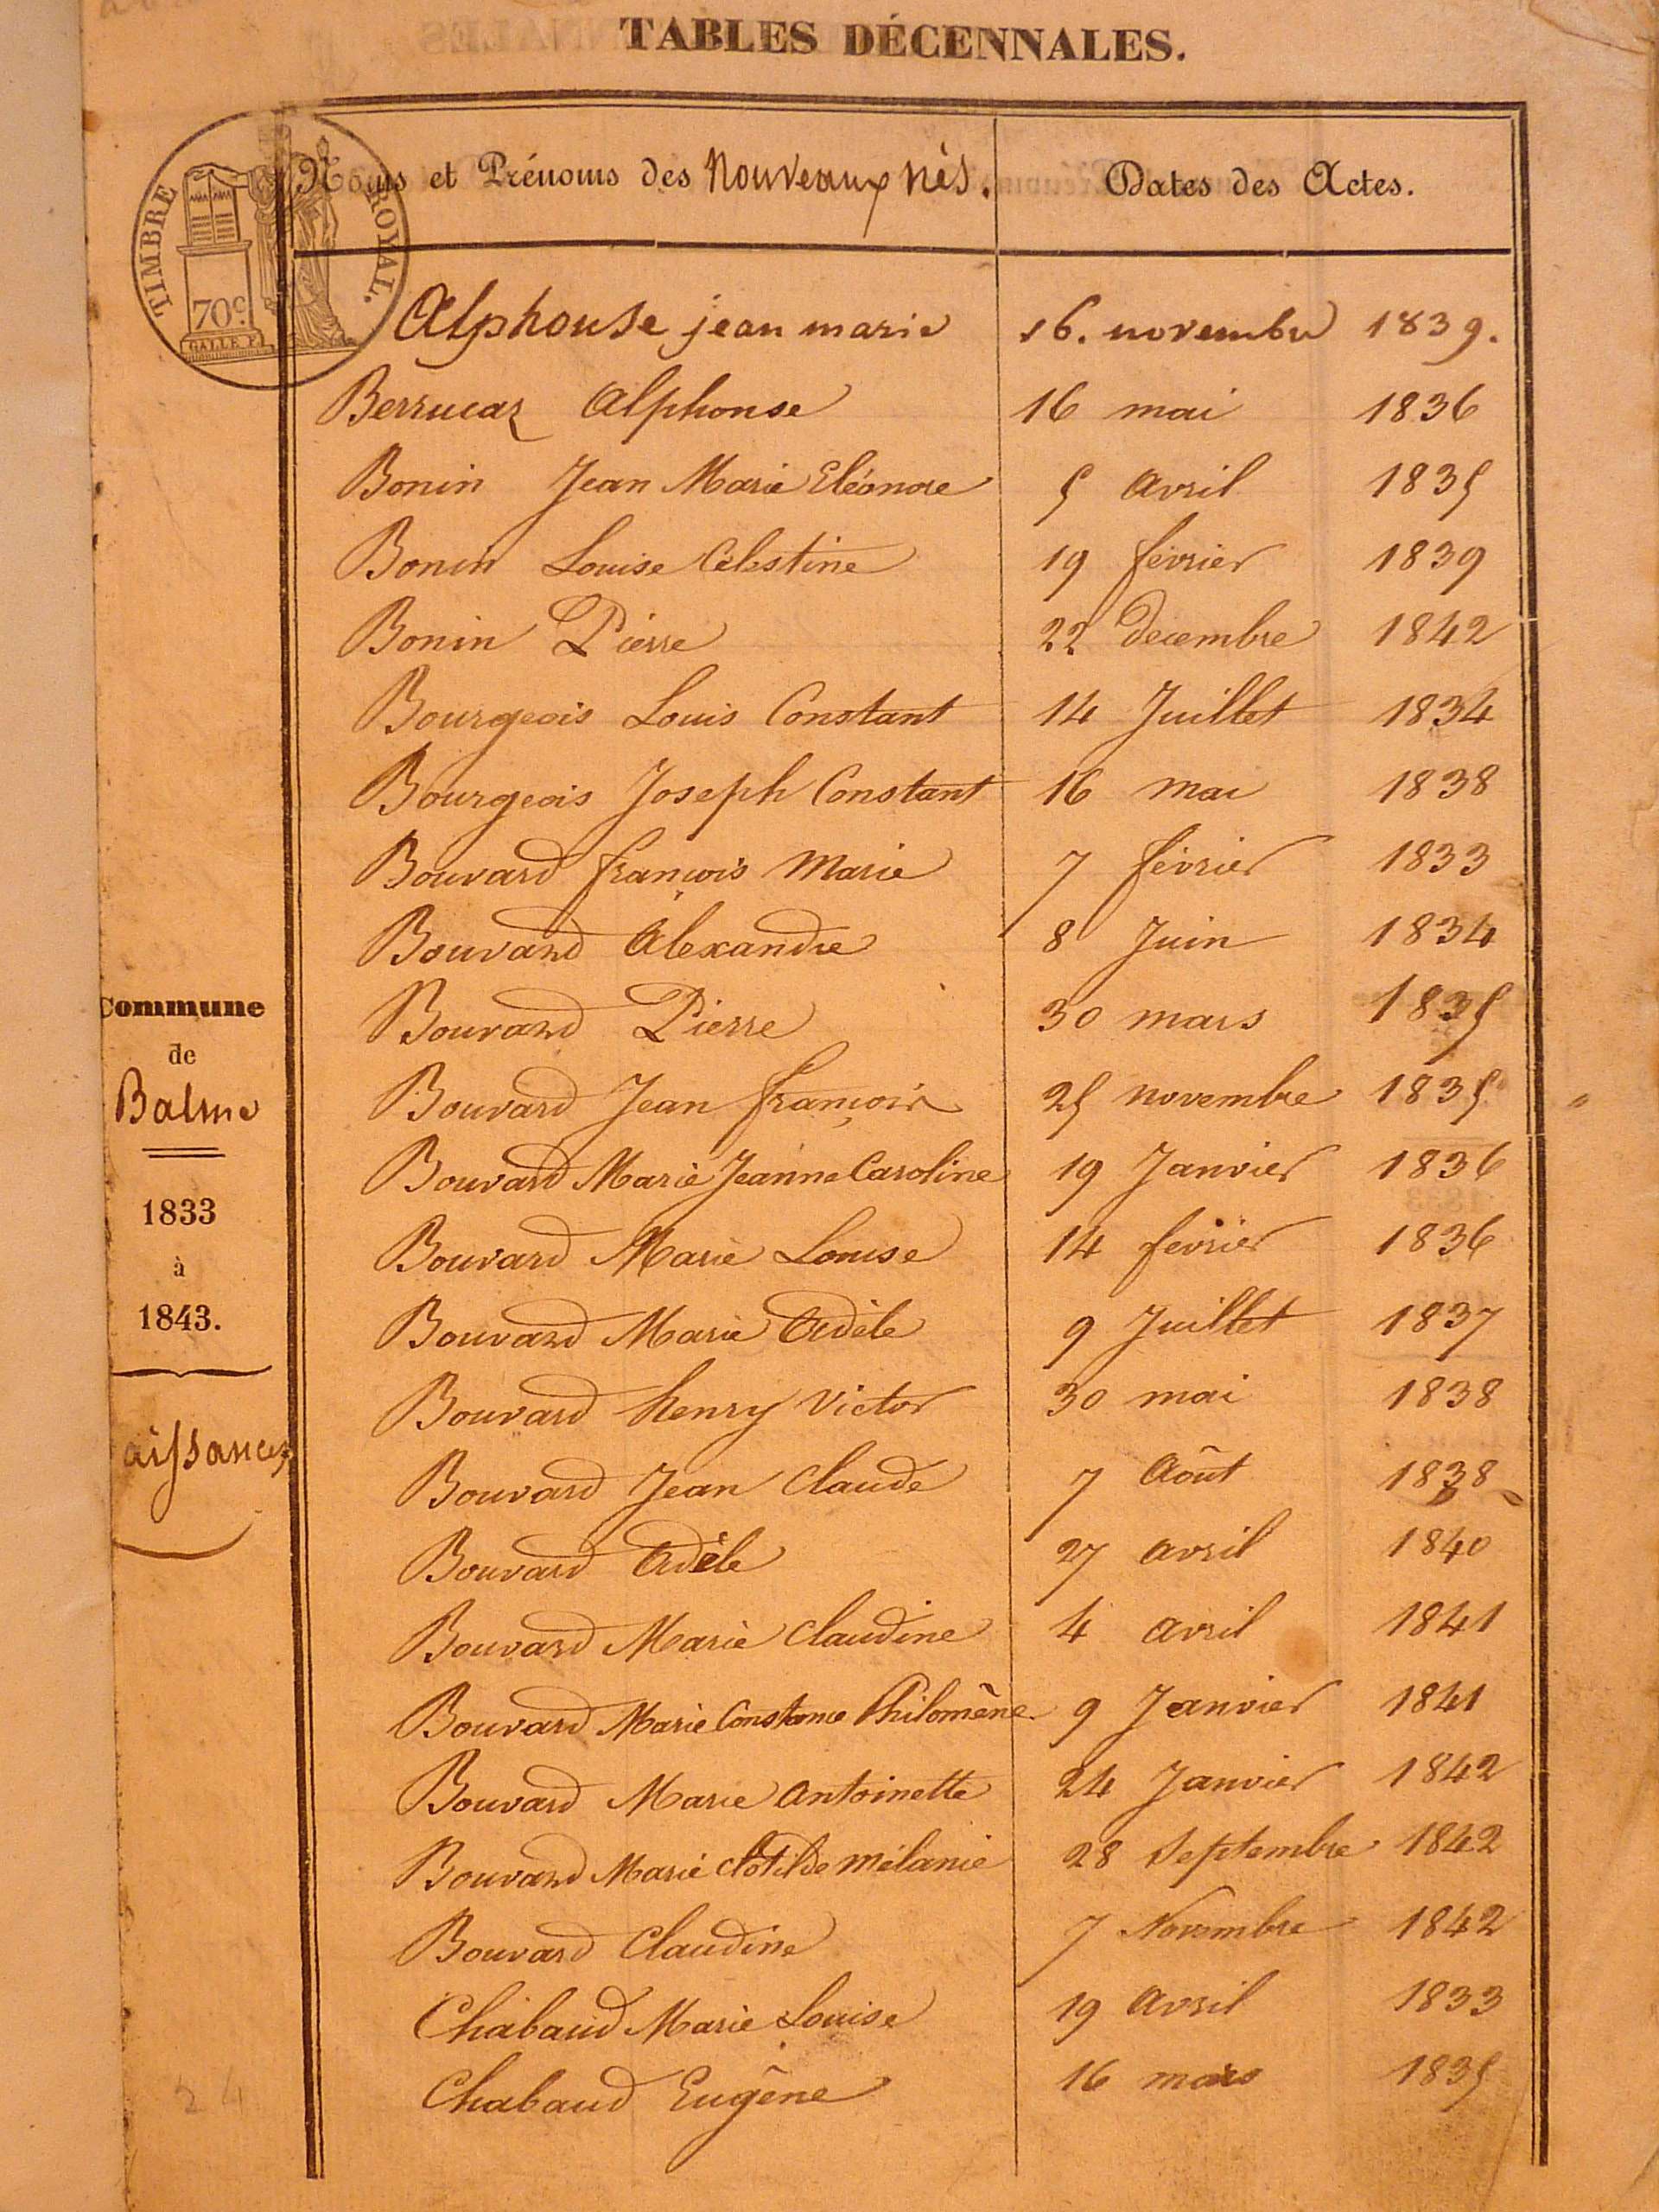 TABLES DÉCENNALES.
TIMBRE ROYAL.
70c.
GALLE F.
Noms et Prénoms des Nouveaux nés. Dates des Actes.
Alphonse jean marie 16. novembre 1839.
Berrucaz Alphonse 16 mai 1836
Bonin Jean Marie Eléonore 5 avril 1835
Bonin Louise Célestine 19 février 1839
Bonin Pierre 22 decembre 1842
Bourgeois Louis Constant 14 Juillet 1834
Bourgeois Joseph Constant 16 mai 1838
Bouvard françois Marie 7 février 1833
Bouvard Alexandre 8 Juin 1834
Bouvard Pierre 30 mars 1835
Bouvard Jean françois 25 novembre 1835
Bouvard Marie Jeanne Caroline 19 Janvier 1836
Bouvard Marie Louise 14 fevrier 1836
Bouvard Marie Adèle 9 Juillet 1837
Bouvard henry Victor 30 mai 1838
Bouvard Jean Claude 7 Août 1838
Bouvard Adèle 27 avril 1840
Bouvard Marie Claudine 4 avril 1841
Bouvard Marie Constance Philomène 9 Janvier 1841
Bouvard Marie Antoinette 24 Janvier 1842
Bouvard Marie Clotilde Mélanie 28 Septembre 1842
Bouvard Claudine 7 Novembre 1842
Chabaud Marie Louise 19 avril 1833
Chabaud Eugène 16 mars 1835
Commune
de
Balme
1833
à
1843.
aissances
24